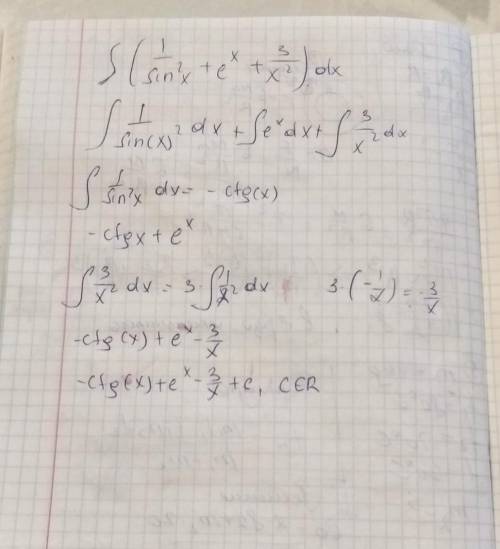 ∫ (1/sin²x + e^x + 3/x²) dx
∫ 1/sin(x)² dx + ∫ e^x dx + ∫ 3/x² dx
∫ 1/sin²x dx = - ctg(x)
-ctgx + e^x
∫ 3/x² dx = 3·∫ 1/x² dx 3·(-1/x) = -3/x
-ctg(x) + e^x - 3/x
-ctg(x) + e^x - 3/x + c, C∈R